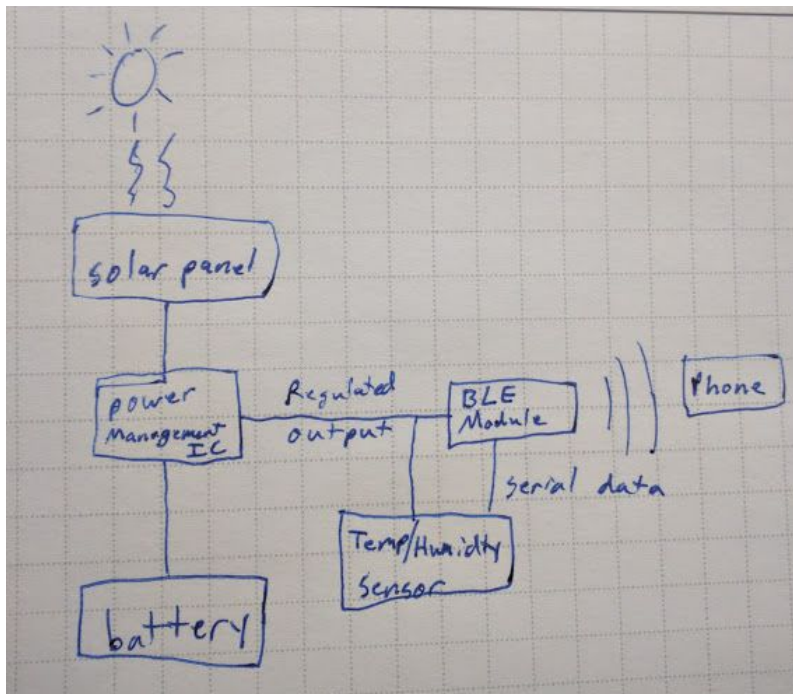 solar panel
power
Management
IC
Regulated
output
BLE
Module
Phone
serial data
Temp/Humidty
Sensor
battery